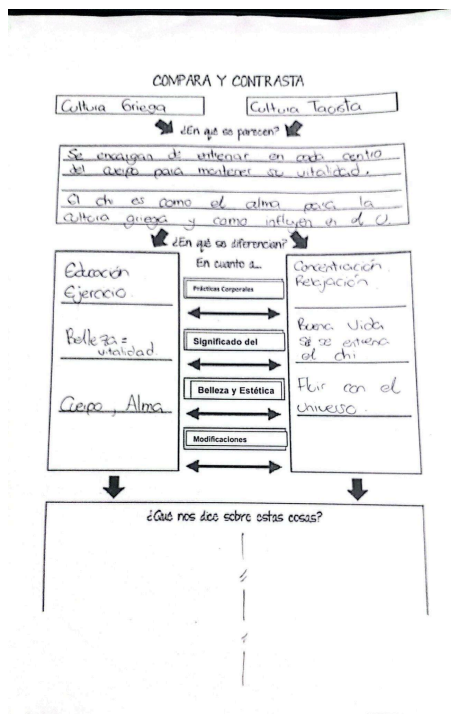 COMPARA Y CONTRASTA
Cultura Griega
Cultura Taoista
¿En qué se parecen?
Se encargan de entrenar en cada centro
del cuerpo para mantener su vitalidad.
El chi es como el alma para la
cultura griega y como influyen en el U.
¿En qué se diferencian?
Educación
Ejercicio
Belleza =
vitalidad
Cuerpo, Alma
En cuanto a...
Prácticas Corporales
Significado del
Belleza y Estética
Modificaciones
Concentración
Relajación.
Buena Vida
si se entrena
el chi
Fluir con el
Universo.
¿Qué nos dice sobre estas cosas?